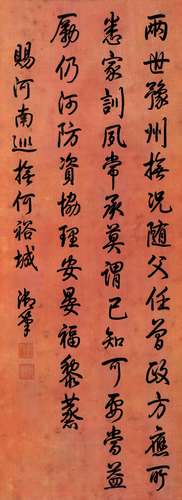 兩世豫州撫況隨父任曾政方應所
悉家訓夙常承莫謂已知可忽當益
勵仍河防資協理安晏福黎蒸
賜河南巡撫何裕城 御筆